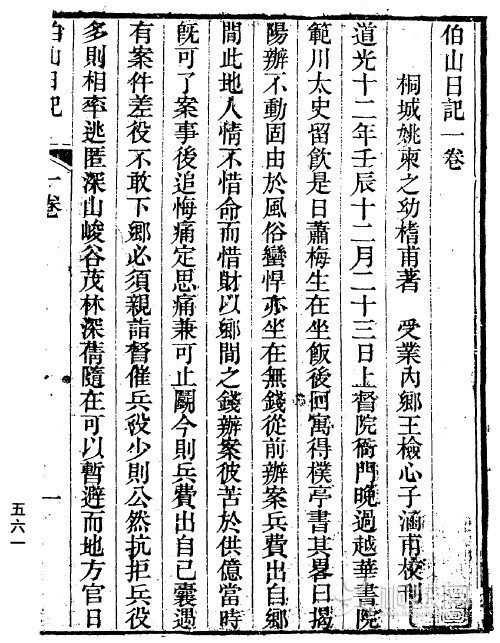 伯山日記一卷
桐城姚柬之幼榰甫著　受業內鄉王檢心子涵甫校刊
道光十二年壬辰十二月二十三日上督院衙門晚過越華書院
範川太史留飲是日蕭梅生在坐飯後回寓得樸亭書其畧曰揭
陽辦不動固由於風俗蠻悍亦坐在無錢從前辦案兵費出自鄉
間此地人情不惜命而惜財以鄉間之錢辦案彼苦於供億當時
既可了案事後追悔痛定思痛兼可止鬬今則兵費出自己囊遇
有案件差役不敢下鄉必須親詣督催兵役少則公然抗拒兵役
多則相率逃匿深山峻谷茂林深蒨隨在可以暫避而地方官日
伯山日記
一卷
一
五六一